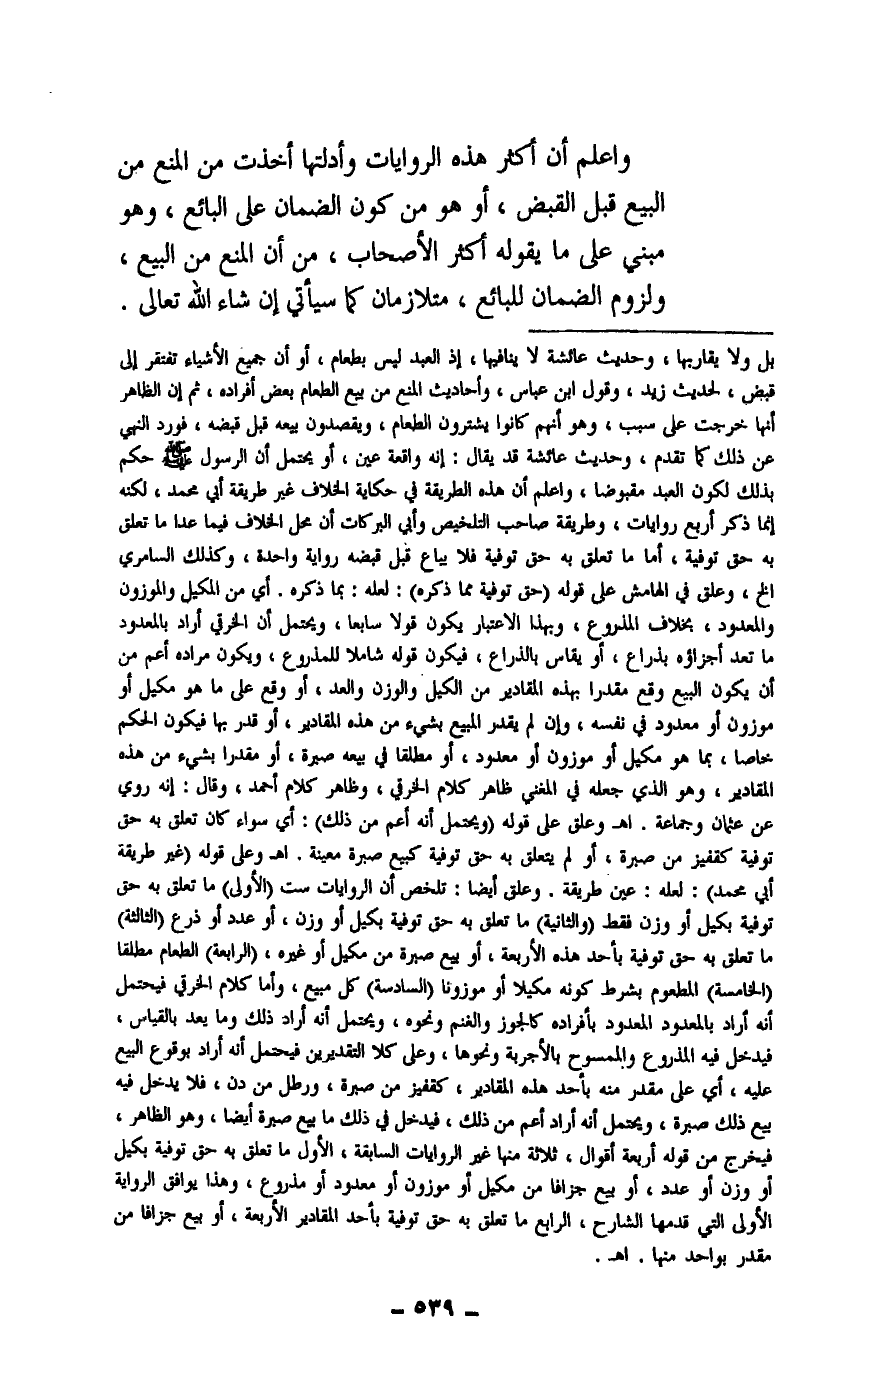 واعلم أن أكثر هذه الروايات وأدلتها أخذت من المنع من
البيع قبل القبض ، أو هو من كون الضمان على البائع ، وهو
مبني على ما يقوله أكثر الأصحاب ، من أن المنع من البيع ،
ولزوم الضمان للبائع ، متلازمان كما سيأتي إن شاء الله تعالى .
بل ولا يقاربها ، وحديث عائشة لا ينافيها ، إذ العبد ليس بطعام ، أو أن جميع الأشياء تفتقر إلى
قبض ، لحديث زيد ، وقول ابن عباس ، وأحاديث المنع من بيع الطعام بعض أفراده ، ثم إن الظاهر
أنها خرجت على سبب ، وهو أنهم كانوا يشترون الطعام ، ويقصدون بيعه قبل قبضه ، فورد النهي
عن ذلك كما تقدم ، وحديث عائشة قد يقال : إنه واقعة عين ، أو يحتمل أن الرسول ﷺ حكم
بذلك لكون العبد مقبوضا ، واعلم أن هذه الطريقة في حكاية الخلاف غير طريقة أبي محمد ، لكنه
إنما ذكر أربع روايات ، وطريقة صاحب التلخيص وأبي البركات أن محل الخلاف فيما عدا ما تعلق
به حق توفية ، أما ما تعلق به حق توفية فلا يباع قبل قبضه رواية واحدة ، وكذلك السامري
الخ ، وعلق في الهامش على قوله (حق توفية مما ذكره) : لعله : بما ذكره . أي من المكيل والموزون
والمعدود ، بخلاف المذروع ، وبهذا الاعتبار يكون قولا سابعا ، ويحتمل أن الخرقي أراد بالمعدود
ما تعد أجزاؤه بذراع ، أو يقاس بالذراع ، فيكون قوله شاملا للمذروع ، ويكون مراده أعم من
أن يكون البيع وقع مقدرا بهذه المقادير من الكيل والوزن والعد ، أو وقع على ما هو مكيل أو
موزون أو معدود في نفسه ، وإن لم يقدر المبيع بشيء من هذه المقادير ، أو قدر بها فيكون الحكم
خاصا ، بما هو مكيل أو موزون أو معدود ، أو مطلقا في بيعه صبرة ، أو مقدرا بشيء من هذه
المقادير ، وهو الذي جعله في المغني ظاهر كلام الخرقي ، وظاهر كلام أحمد ، وقال : إنه روي
عن عثمان وجماعة . اهـ وعلق على قوله (ويحتمل أنه أعم من ذلك) : أي سواء كان تعلق به حق
توفية كقفيز من صبرة ، أو لم يتعلق به حق توفية كبيع صبرة معينة . اهـ وعلى قوله (غير طريقة
أبي محمد) : لعله : عين طريقة . وعلق أيضا : تلخص أن الروايات ست (الأولى) ما تعلق به حق
توفية بكيل أو وزن فقط (والثانية) ما تعلق به حق توفية بكيل أو وزن ، أو عدد أو ذرع (الثالثة)
ما تعلق به حق توفية بأحد هذه الأربعة ، أو بيع صبرة من مكيل أو غيره ، (الرابعة) الطعام مطلقا
(الخامسة) المطعوم بشرط كونه مكيلا أو موزونا (السادسة) كل مبيع ، وأما كلام الخرقي فيحتمل
أنه أراد بالمعدود المعدود بأفراده كالجوز والغنم ونحوه ، ويحتمل أنه أراد ذلك وما يعد بالقياس ،
فيدخل فيه المذروع والممسوح بالأجربة ونحوها ، وعلى كلا التقديرين فيحتمل أنه أراد بوقوع البيع
عليه ، أي على مقدر منه بأحد هذه المقادير ، كقفيز من صبرة ، ورطل من دن ، فلا يدخل فيه
بيع ذلك صبرة ، ويحتمل أنه أراد أعم من ذلك ، فيدخل في ذلك ما بيع صبرة أيضا ، وهو الظاهر ،
فيخرج من قوله أربعة أقوال ، ثلاثة منها غير الروايات السابقة ، الأول ما تعلق به حق توفية بكيل
أو وزن أو عدد ، أو بيع جزافا من مكيل أو موزون أو معدود أو مذروع ، وهذا يوافق الرواية
الأولى التي قدمها الشارح ، الرابع ما تعلق به حق توفية بأحد المقادير الأربعة ، أو بيع جزافا من
مقدر بواحد منها . اهـ .
ـ ٥٣٩ ـ